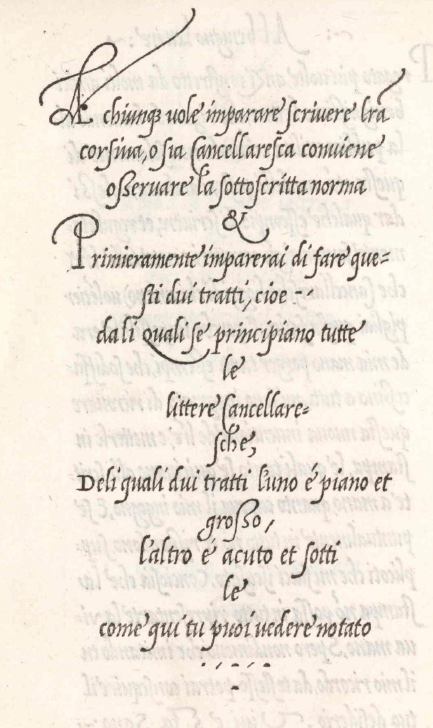 A chiunq3 uole imparare scriuere lrã
corsiua, o sia cancellaresca conuiene
osseruare la sottoscritta norma
&
Primieramente imparerai di fare que=
sti dui tratti, cioe - -
da li quali se principiano tutte
le
littere cancellare=
sche,
Deli quali dui tratti l'uno é piano et
grosso,
l'altro é acuto et sotti
le
come qui tu puoi uedere notato